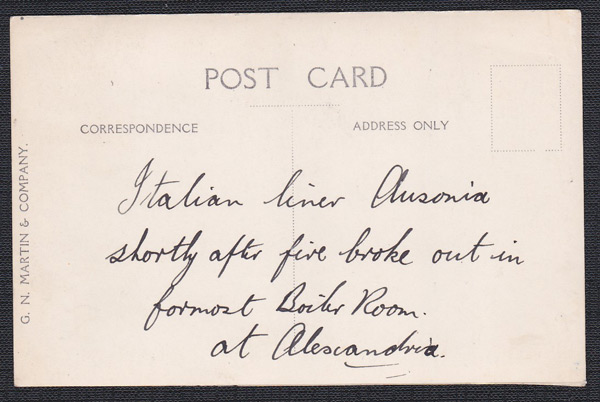 POST CARD
CORRESPONDENCE
ADDRESS ONLY
G. N. MARTIN & COMPANY.
Italian liner Ausonia
shortly after fire broke out in
formost Boiler Room.
at Alexandria.